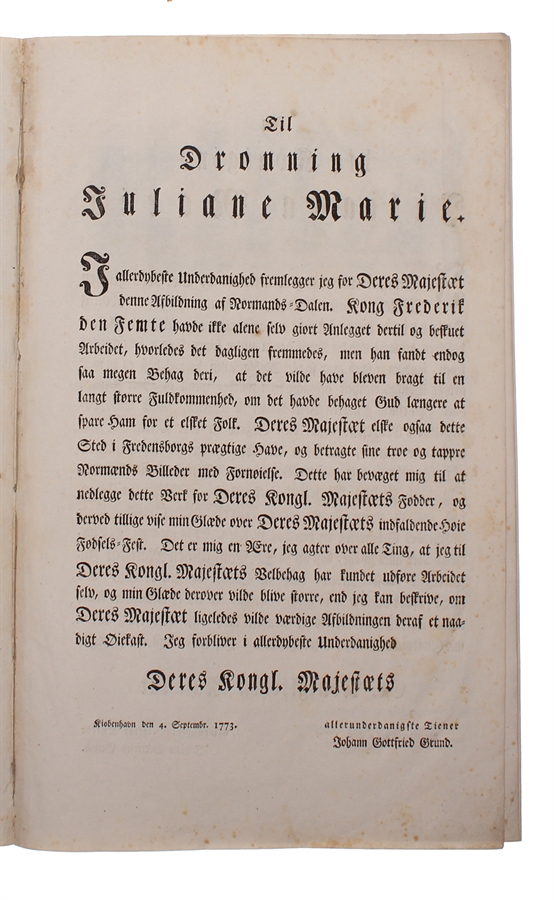 Til
Dronning
Juliane Marie.
J allerdybeste Underdanighed fremlegger jeg for Deres Majestæt
denne Afbildning af Normands-Dalen. Kong Frederik
den Femte havde ikke alene selv giort Anlegget dertil og beskuet
Arbeidet, hvorledes det dagligen fremmedes, men han fandt endog
saa megen Behag deri, at det vilde have bleven bragt til en
langt større Fuldkommenhed, om det havde behaget Gud længere at
spare Ham for et elsket Folk. Deres Majestæt elske ogsaa dette
Sted i Fredensborgs prægtige Have, og betragte sine troe og tappre
Normænds Billeder med Fornøielse. Dette har bevæget mig til at
nedlegge dette Verk for Deres Kongl. Majestæts Fødder, og
derved tillige vise min Glæde over Deres Majestæts indfaldende Høie
Fødsels-Fest. Det er mig en Ære, jeg agter over alle Ting, at jeg til
Deres Kongl. Majestæts Velbehag har kundet udføre Arbeidet
selv, og min Glæde derover vilde blive større, end jeg kan beskrive, om
Deres Majestæt ligeledes vilde værdige Afbildningen deraf et naa-
digt Øiekast. Jeg forbliver i allerdybeste Underdanighed
Deres Kongl. Majestæts
Kiøbenhavn den 4. Septembr. 1773.
allerunderdanigste Tiener
Johann Gottfried Grund.